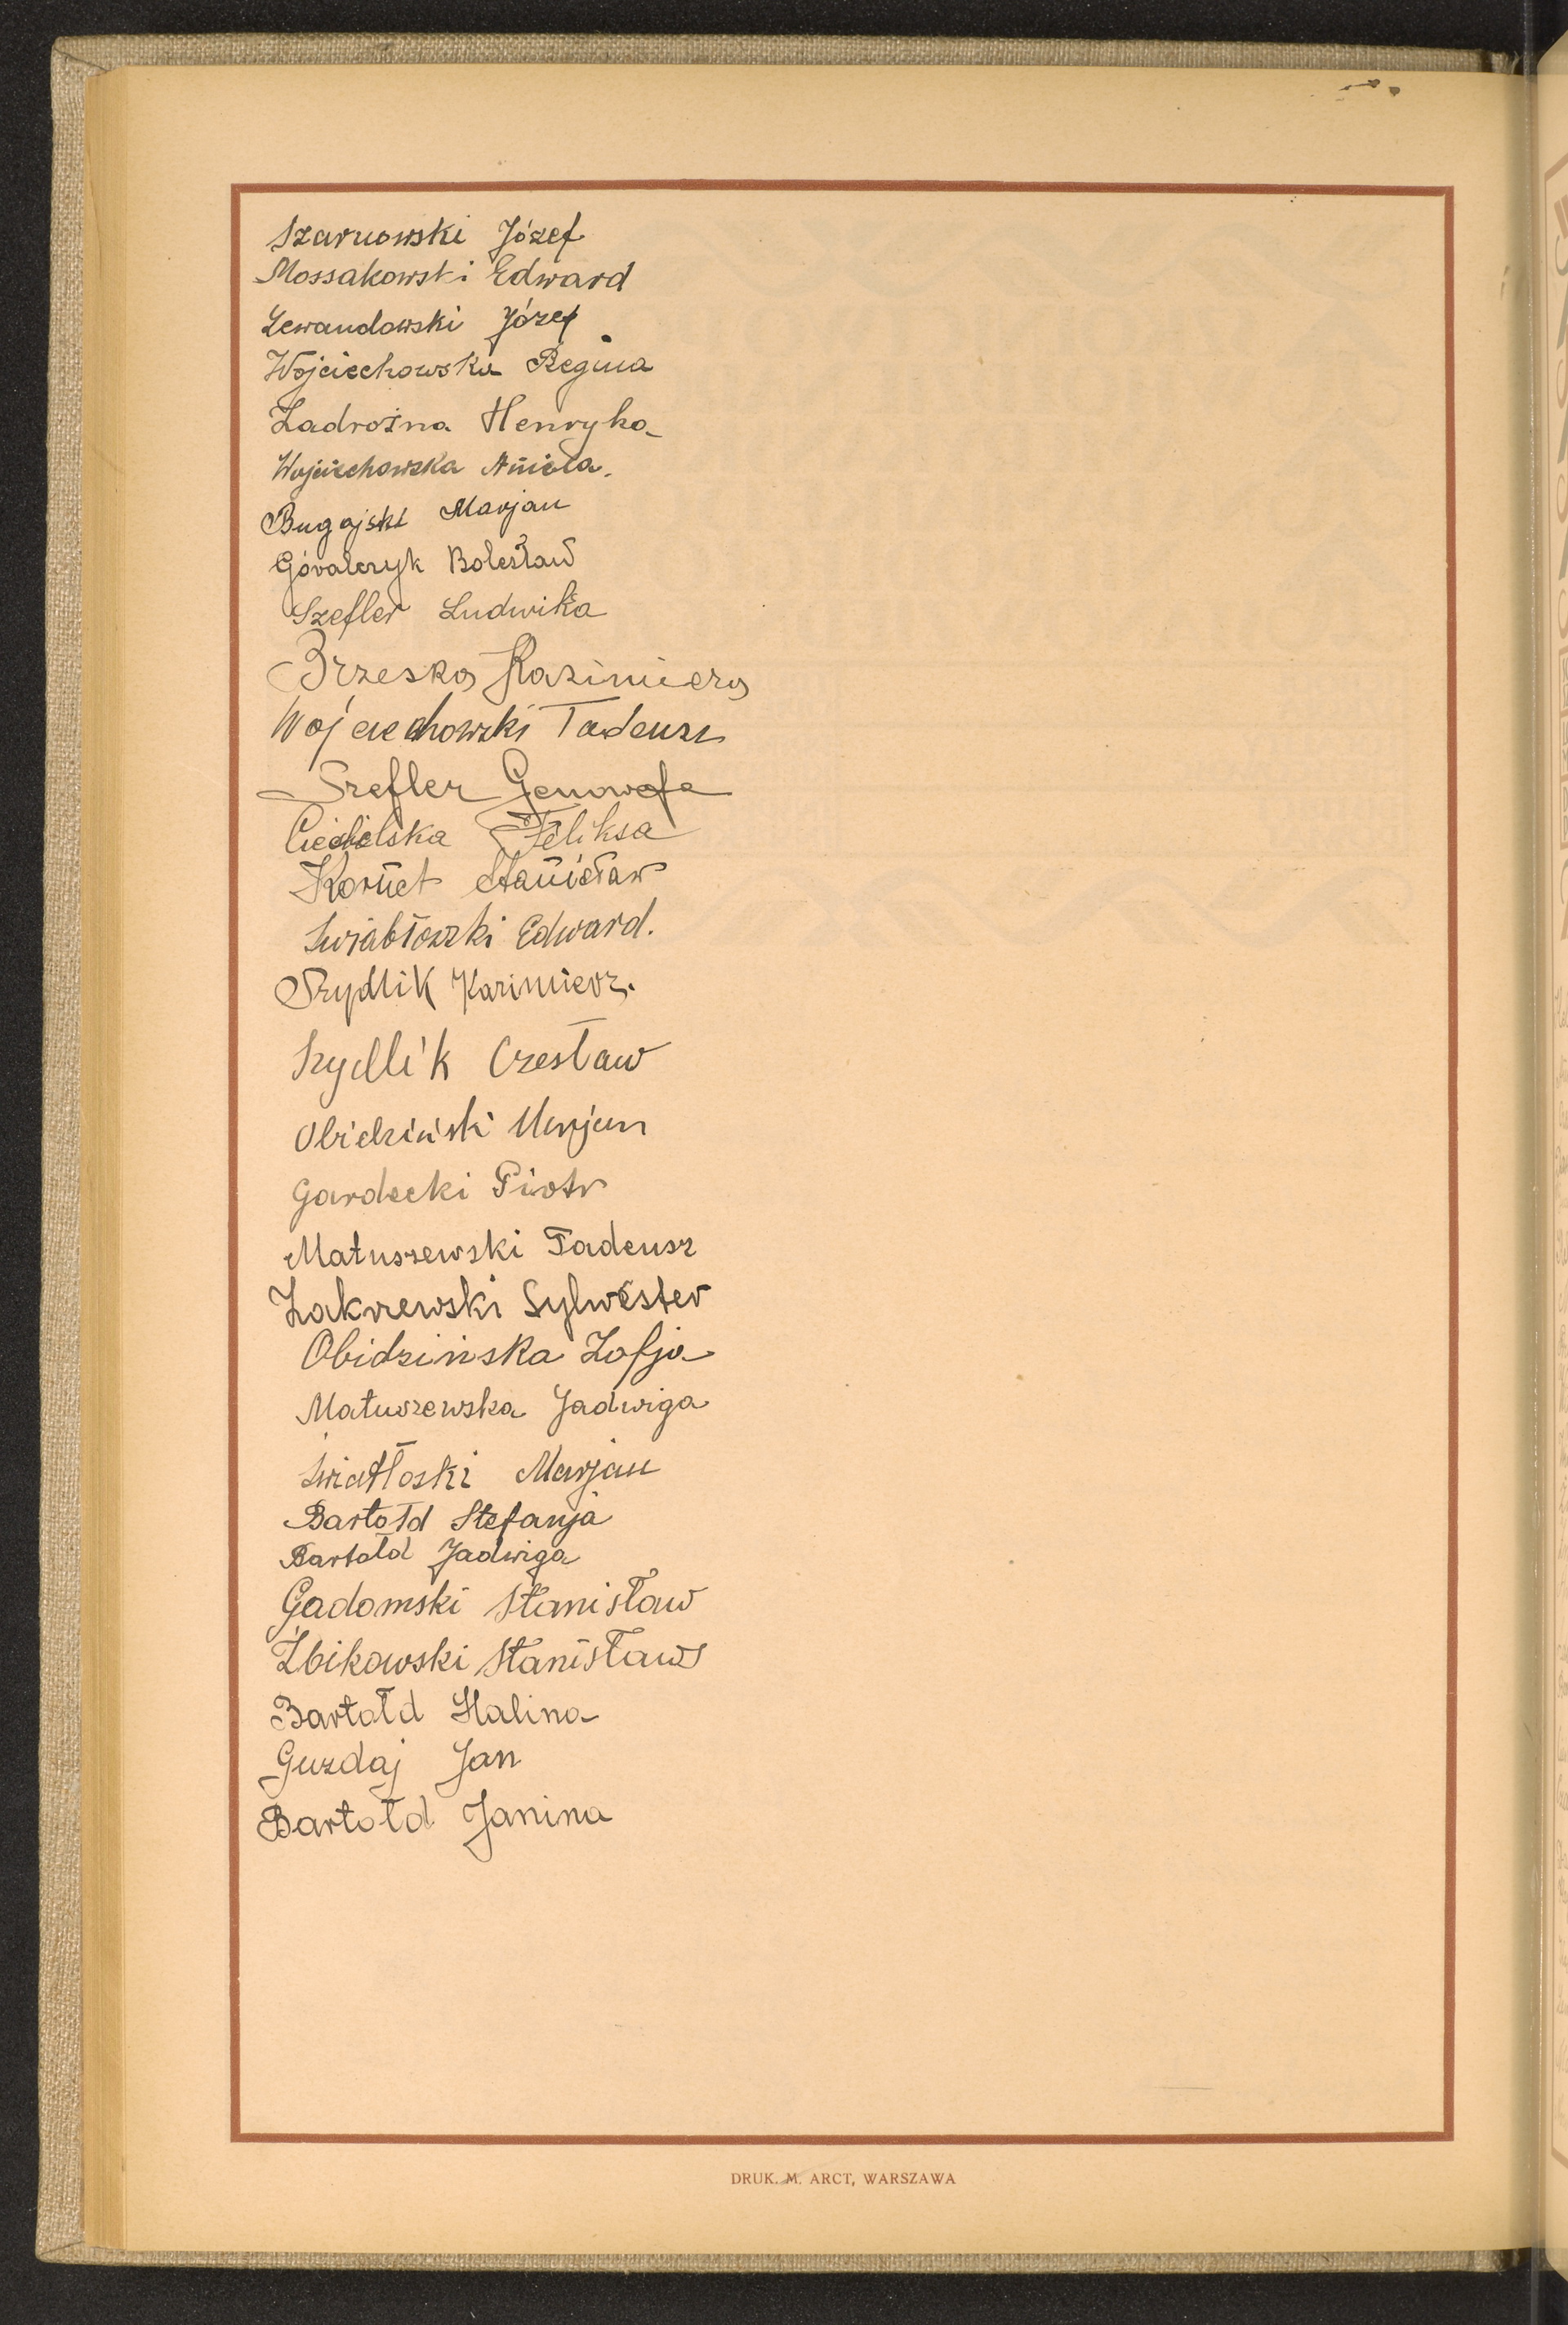 Szarnowski Józef
Mossakowski Edward
Lewandowski Józef
Wojciechowska Regina
Zadrożna Henryka
Wojciechowska Aniela.
Bugajski Marjan
Góralczyk Bolesław
Szefler Ludwika
Brzeska Kazimiera
Wojciechowski Tadeusz
Szefler Genowefa
Cieślelska Feliksa
Kornet Stanisław
Edward.
Szydlik Kazimierz.
Szydlik Czesław
Obidziński Marjan
Gardecki Piotr
Matuszewski Tadeusz
Zakrzewski Sylwester
Obidzińska Zofja
Matuszewska Jadwiga
Światłoski Marjan
Bartołd Stefanja
Bartołd Jadwiga
Gadomski Stanisław
Żbikowski Stanisław
Bartołd Halina
Guzdaj Jan
Bartołd Janina
DRUK. M. ARCT, WARSZAWA